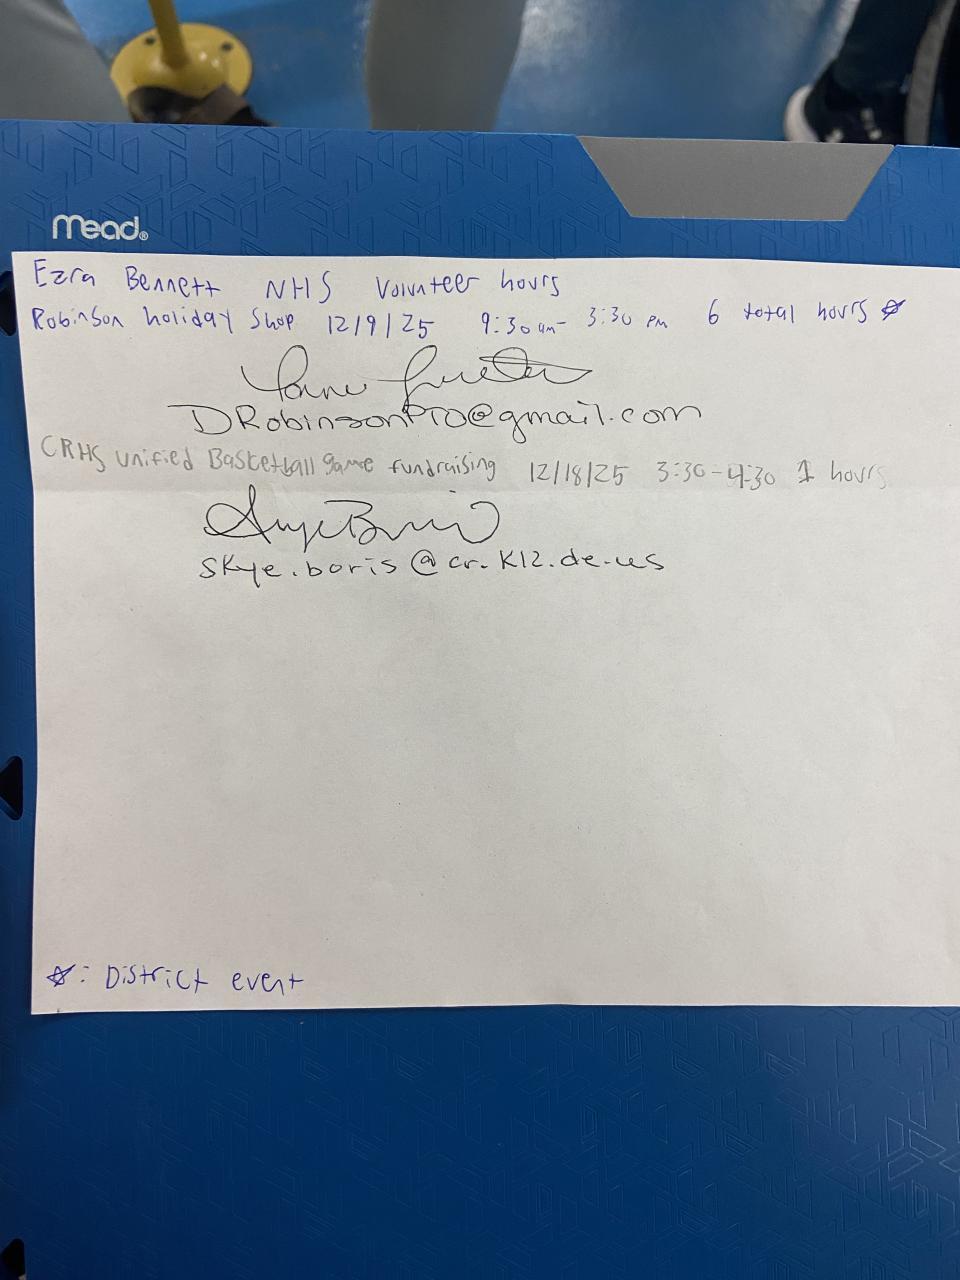 Mead®
Ezra Bennett NHS Volunteer hours
Robinson holiday Shop 12/9/25 9:30 am- 3:30 pm 6 total hours ☆
DRobinsonPTO@gmail.com
CRHS unified Basketball game fundraising 12/18/25 3:30-4:30 1 hours
skye.boris@cr.k12.de.us
☆: District event